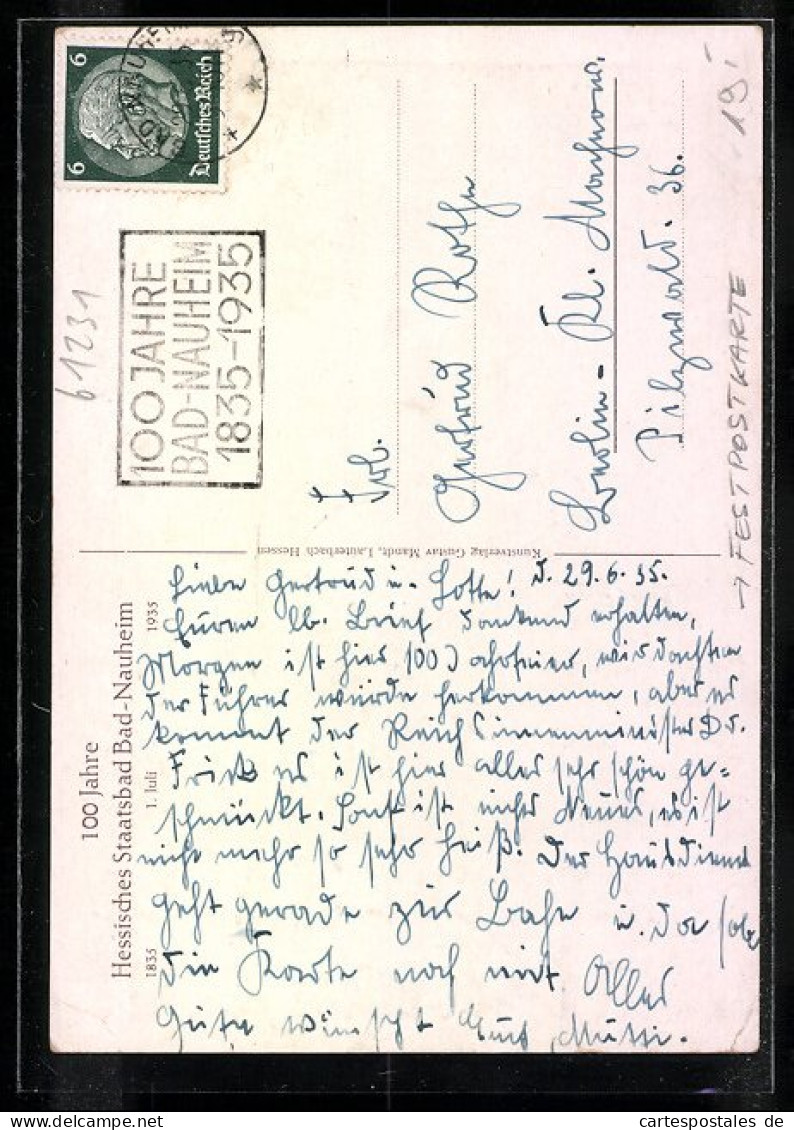 6 6
Deutsches Reich
BAD NAUHEIM
100 JAHRE
BAD-NAUHEIM
1835-1935
61231
19,-
→ FESTPOSTKARTE
Gertrud Rothe
Berlin - Kl. Machnow.
Pilzwald. 36.
Kunstverlag Gustav Mandt, Lauterbach Hessen
100 Jahre
Hessisches Staatsbad Bad-Nauheim
1835 1. Juli 1935
Liebe Gertrud u. Lotte! d. 29.6.35.
Euren lb. Brief dankend erhalten,
Morgen ist hier 100 Jahrfeier, wir dachten
der Führer würde herkommen, aber es
kommt der Reichsinnenminister Dr.
Frick es ist hier alles sehr schön ge=
schmückt. Sonst ist nichts Neues, es ist
nicht mehr so sehr heiß. Der Hausdiener
geht gerade zur Bahn u. da soll
die Karte noch mit. Alles
Gute wünscht Euch Mutti.